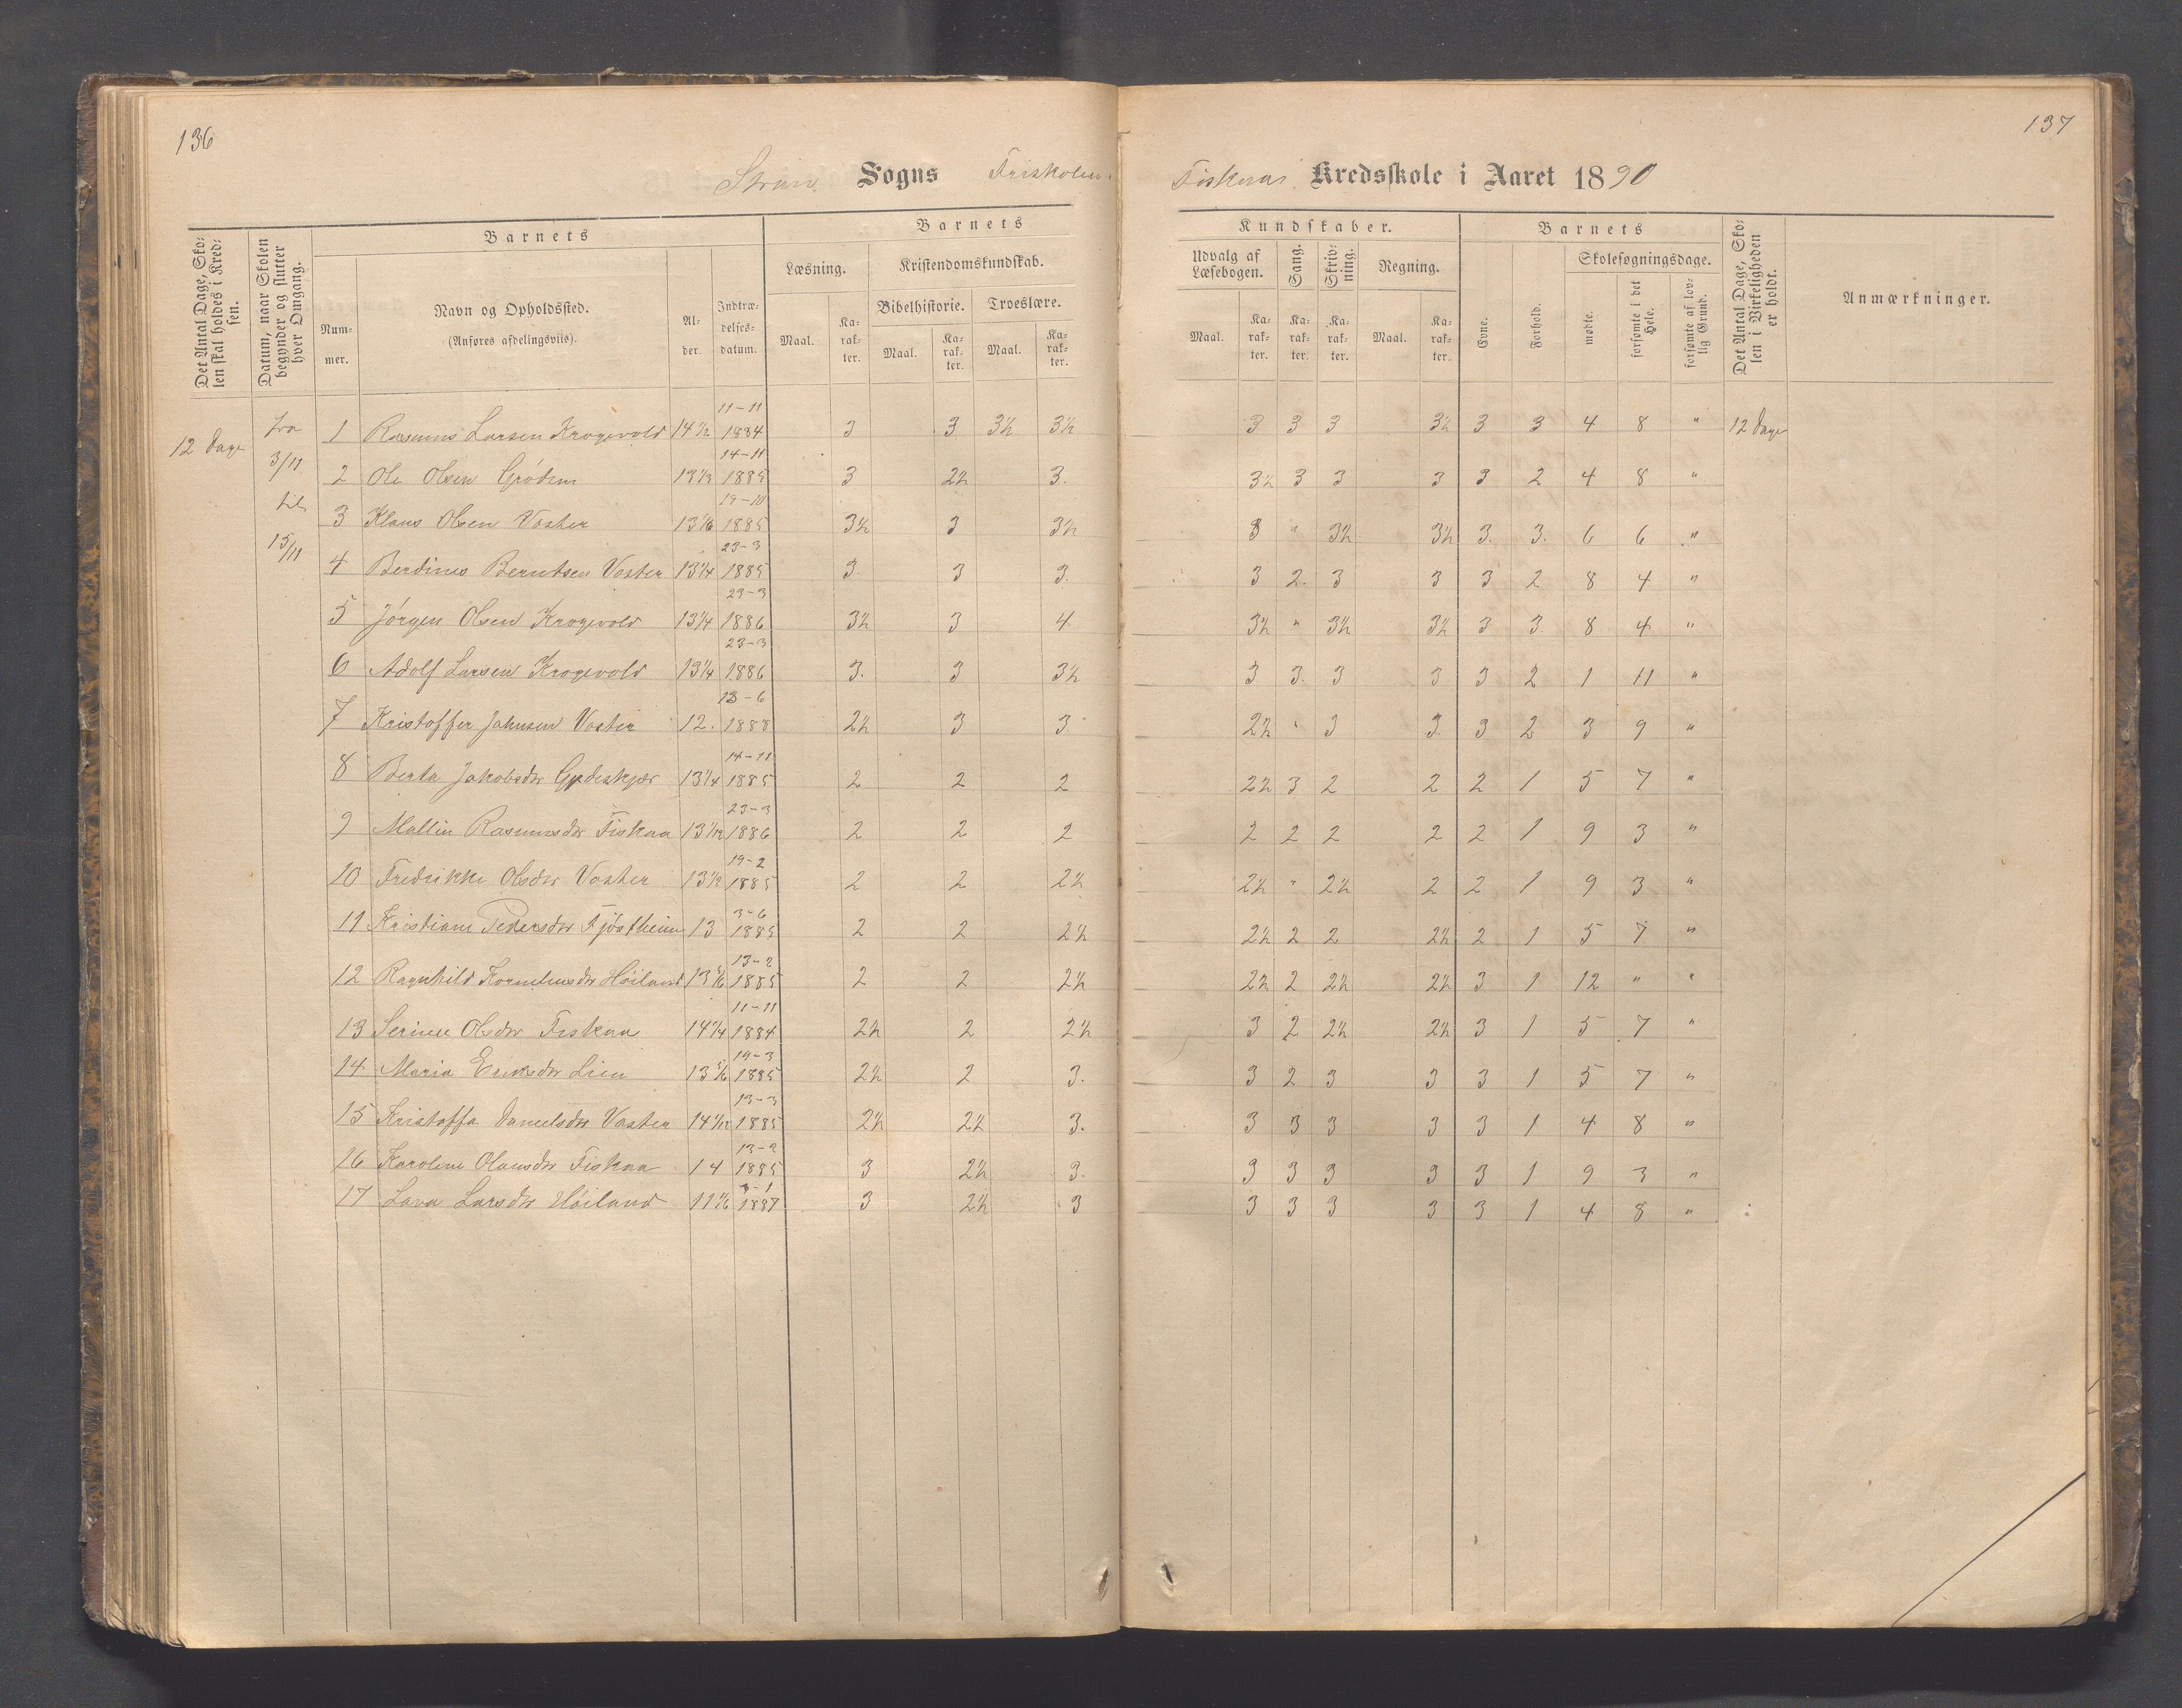 136
137
Sogns Friskolen
Fiskaas Kredsskole i Aaret 1890
Det Antal Dage, Sko-
len skal holdes i Kred-
sen.
Datum, naar Skolen
begynder og slutter
hver Omgang.
Barnets
Num-
mer.
Navn og Opholdssted.
(Anføres afdelingsviis).
Al-
der.
Indtræ-
delses-
datum.
Barnets
Læsning.
Maal.
Ka-
rak-
ter.
Kristendomskundskab.
Bibelhistorie.
Maal.
Ka-
rak-
ter.
Troeslære.
Maal.
Ka-
rak-
ter.
Kundskaber.
Udvalg af
Læsebogen.
Maal.
Ka-
rak-
ter.
Sang.
Ka-
rak-
ter.
Skriv-
ning.
Ka-
rak-
ter.
Regning.
Maal.
Ka-
rak-
ter.
Barnets
Evne.
Forhold.
Skolesøgningsdage.
mødte.
forsømte i det
Hele.
forsømte af lov-
lig Grund.
Det Antal Dage, Sko-
len i Virkeligheden
er holdt.
Anmærkninger.
12 Dage
fra
3/11
til
15/11
11-11
1 Rasmus Larsen Krogevold 14 1/2 1884 3 3 3½ 3½ 3 3 3 3½ 3 3 4 8 " 12 Dage
14-11
2 Ole Olsen Grødem 13 1/3 1885 3 2½ 3. 3½ 3 3 3 3 2 4 8 "
19-10
3 Klaus Olsen Vaster 13 1/6 1885 3½ 3 3½ 3 " 3½ 3½ 3. 3. 6 6 "
23-3
4 Berdines Berntsen Vaster 13 1/4 1885 3. 3 3. 3 2. 3 3 3 2 8 4 "
23-3
5 Jörgen Olsen Krogevold 13 1/4 1886 3½ 3 4 3½ " 3½ 3½ 3 3. 8 4 "
23-3
6 Adolf Larsen Krogevold 13 1/4 1886 3. 3 3½ 3 3. 3 3 3 2 1 11 "
13-6
7 Kristoffer Johnsen Vaster 12. 1888 2½ 3 3. 2½ " 3 3. 3 2 3 9 "
14-11
8 Berta Jakobsdr 13 1/4 1885 2 2 2 2½ 3 2 2 2 1 5 7 "
23-3
9 Mallin Rasmusdr Fiskaa 13 1/12 1886 2 2 2 2 2 2 2 2 1 9 3 "
19-2
10 Fredrikke Olsdr Vaster 13 1/2 1885 2 2 2½ 2½ " 2½ 2 2 1 9 3 "
3-6
11 Kristiane Pedersdr Fjöstheim 13 1885 2 2 2½ 2½ 2 2 2½ 2 1 5 7 "
13-2
12 Ragnhild Korneliusdr Höiland 13 5/6 1885 2 2 2½ 2½ 2 2½ 2½ 3 1 12 " "
11-11
13 Serine Olsdr Fiskaa 14 1/4 1884 2½ 2 2½ 3 2 2½ 2½ 3 1 5 7 "
19-3
14 Maria Eriksdr Lien 13 5/6 1885 2½ 2 3. 3 2 3 3 3 1 5 7 "
13-3
15 Kristoffa Danielsdr Vaster 14 1/12 1885 2½ 2½ 3. 3 3 3 3 3 1 4 8 "
13-2
16 Karoline Olausdr Fiskaa 14 1885 3 2½ 3. 3 3 3 3 3 1 9 3 "
3-1
17 Lava Larsdr Höiland 11 1/6 1887 3 2½ 3 3 3 3 3 3 1 4 8 "